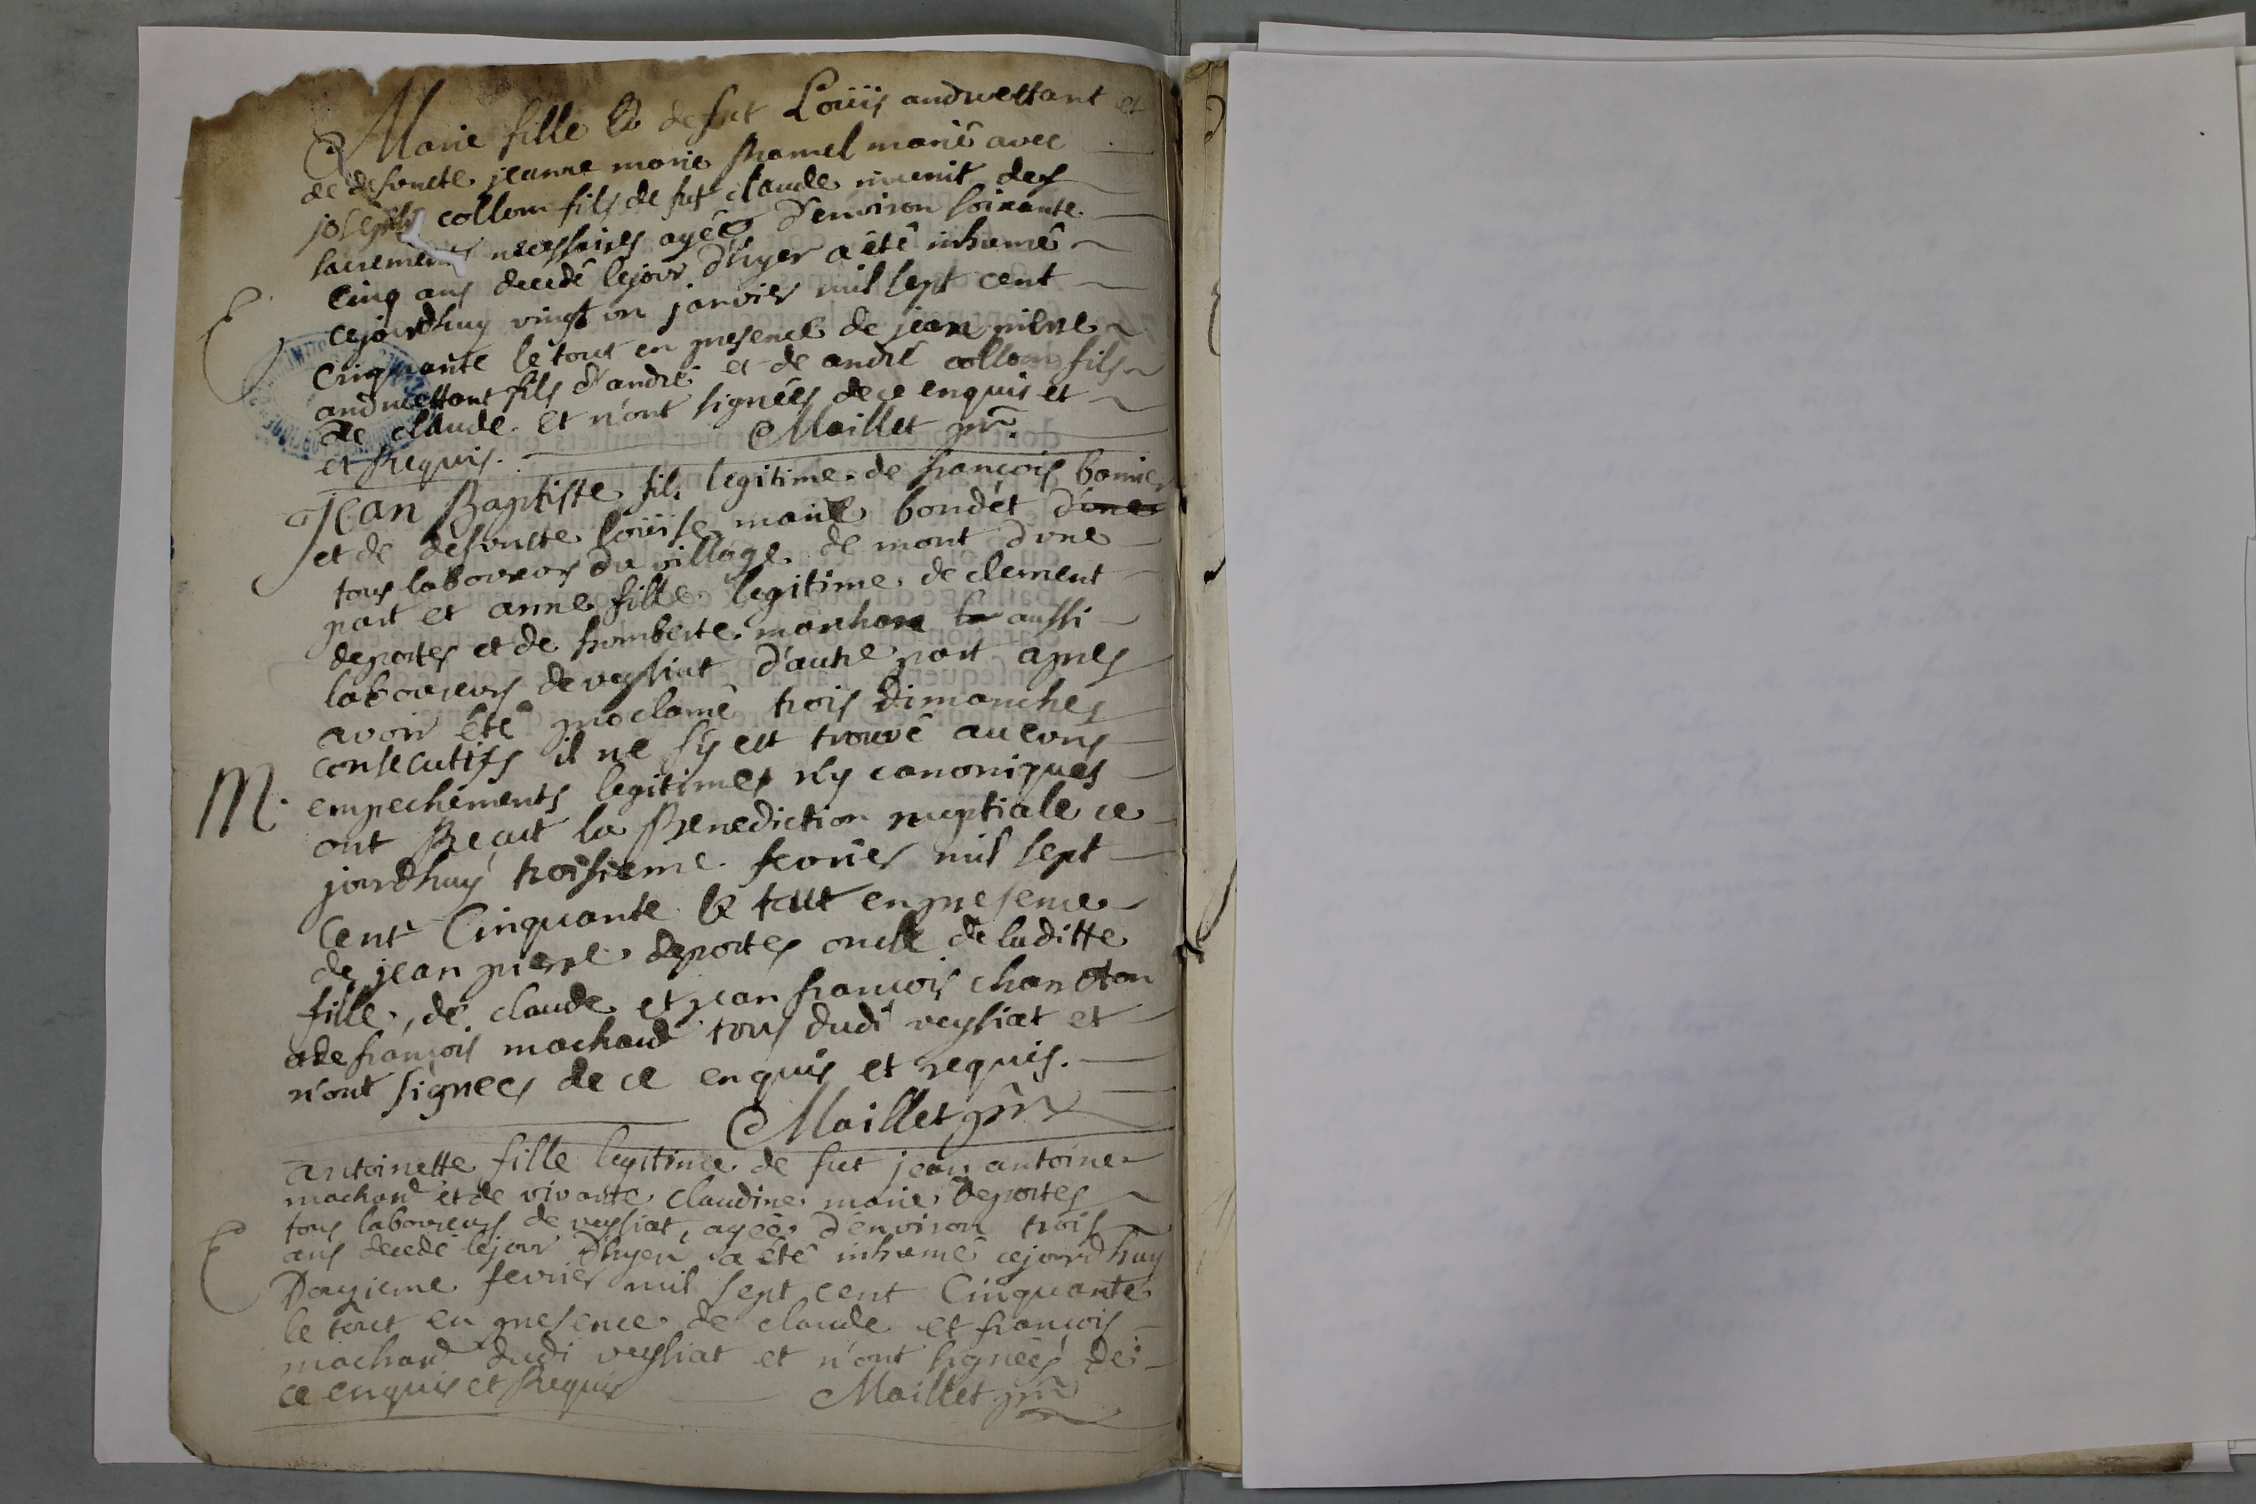 Marie fille de fut Loüis andruettant et
de defuncte jeanne marie Ramel marie avec
joseph collom fils de fut claude munit des
sacrements necessaires agée d'environ soixante
cinq ans decedé lejour d'hyer a été inhumé
cejourdhuy vingt un janvier mil sept cent
cinquante le tout en presence de jean pierre
andruettant fils d'andré et de andré collom fils
de claude. et n'ont signées de ce enquis et
et Requis. Maillet ptr
E
Jean Baptiste fils legitime de françois bonier
et de defuncte loüise marie bondet d'une
tous laboureurs du village de mont d'une
part et anne fille legitime de clement
deportes et de humberte marchon aussi
laboureurs de veysiat d'autre part apres
avoir été proclamé trois dimanches
consecutifs il ne s'y est trouvé aucuns
M. empechements legitimes n'y canoniques
ont Reçut la Benediction nuptiale ce
jourdhuy troisieme fevrier mil sept
cent Cinquante le tout en presence
de jean pierre deportes oncle de laditte
fille, de claude et jean françois chanoton
ade françois machard tous dudi veysiat et
n'ont signees de ce enquis et requis.
Maillet ptr
antoinette fille legitime de fut jean antoine
machard et de vivante claudine marie deportes
tous laboureurs de veysiat, agée d'environ trois
E ans decedé lejour d'hyer a été inhumé cejourdhuy
Douzieme fevrier mil sept cent Cinquante
le tout en presence de claude et françois
machard dudi veysiat et n'ont signées de
ce enquis et Requis Maillet ptr